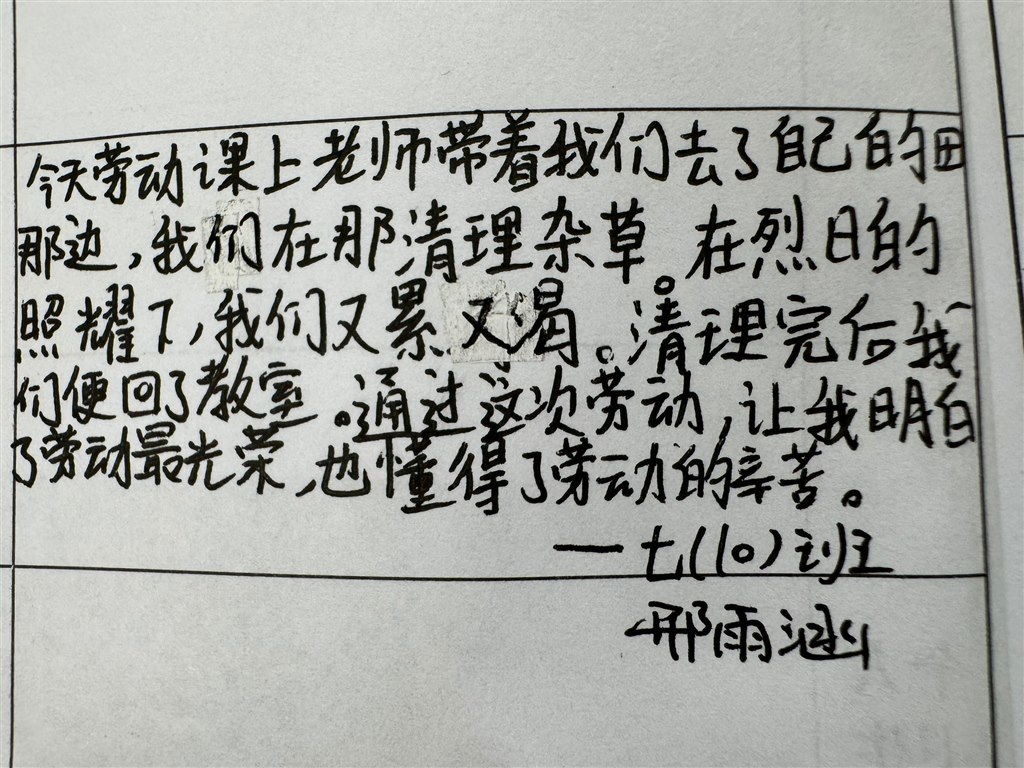 今天劳动课上老师带着我们去了自己的田
那边,我们在那清理杂草。在烈日的
照耀下,我们又累又渴。清理完后我
们便回了教室。通过这次劳动,让我明白
了劳动最光荣,也懂得了劳动的辛苦。
一七(10)班
邢雨涵